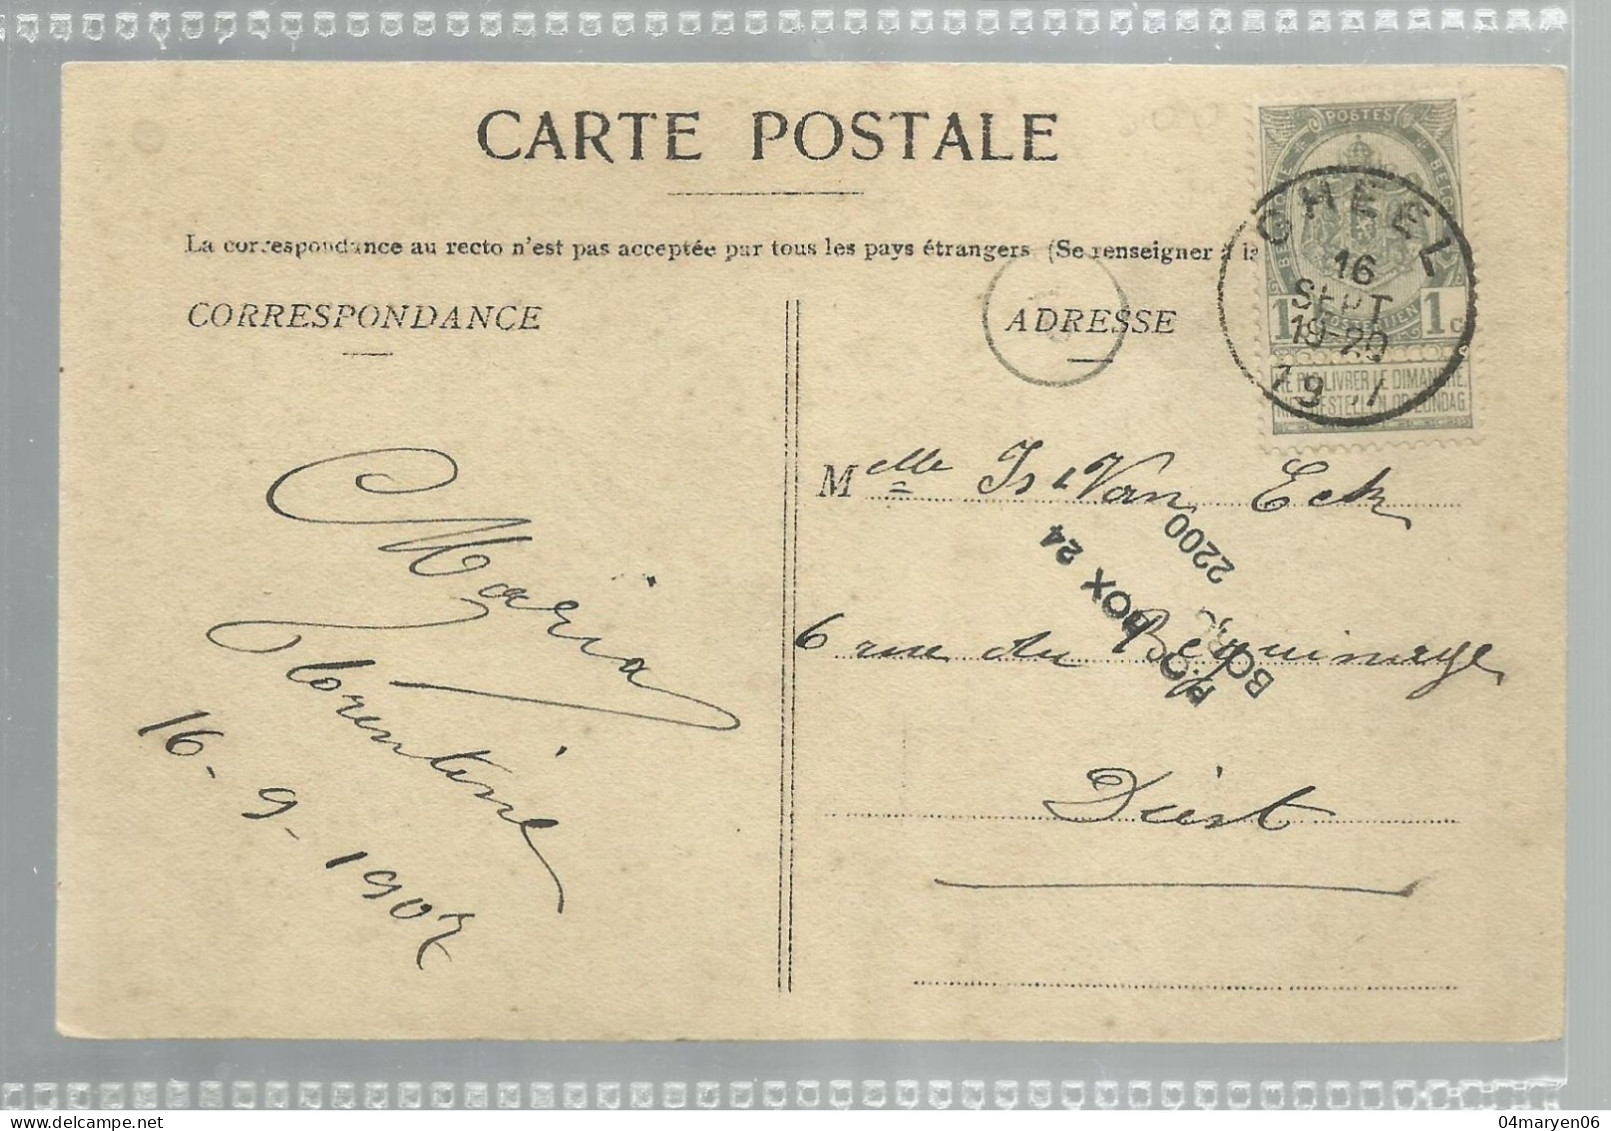 CARTE POSTALE
La correspondance au recto n'est pas acceptée par tous les pays étrangers (Se renseigner à la
CORRESPONDANCE
ADRESSE
POSTES
1 1c
NE PAS LIVRER LE DIMANCHE.
NIET BESTELLEN OP ZONDAG
GHEEL
16
SEPT
18-20
Melle Is Van Eck
6 rue du Béguinage
Diest
Maria
Florentine
16-9-1907
P.O. BOX 24
2200
04maryen06